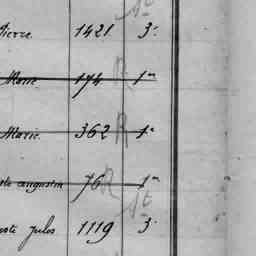 St
Pierre 1421 3.
Marie 174 R 1re
Marie 362 R 1e
augustin 76 R 1re
St
Jules 1119 3.